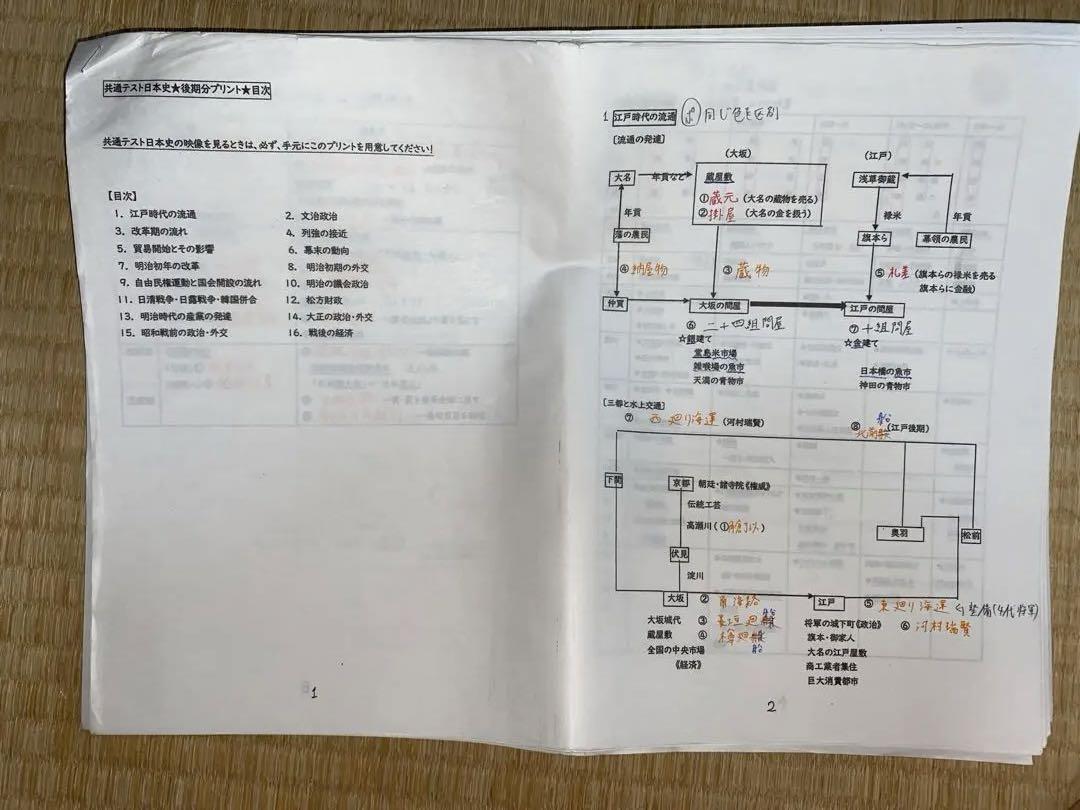 共通テスト日本史★後期分プリント★目次
共通テスト日本史の映像を見るときは、必ず、手元にこのプリントを用意してください!
【目次】
1．江戸時代の流通
2．文治政治
3．改革期の流れ
4．列強の接近
5．貿易開始とその影響
6．幕末の動向
7．明治初年の改革
8．明治初期の外交
9．自由民権運動と国会開設の流れ
10．明治の議会政治
11．日清戦争・日露戦争・韓国併合
12．松方財政
13．明治時代の産業の発達
14．大正の政治・外交
15．昭和戦前の政治・外交
16．戦後の経済
1
1 江戸時代の流通 同じ色を区別
[流通の発達]
(大坂)
(江戸)
大名
年貢など
蔵屋敷
①蔵元(大名の蔵物を売る)
②掛屋(大名の金を扱う)
浅草御蔵
年貢
禄米
年貢
藩の農民
旗本ら
幕領の農民
④納屋物
③蔵物
⑤札差(旗本らの禄米を売る
旗本らに金融)
仲買
大坂の問屋
江戸の問屋
⑥二十四組問屋
⑦十組問屋
☆銀建て
☆金建て
堂島米市場
雑喉場の魚市
天満の青物市
日本橋の魚市
神田の青物市
[三都と水上交通]
⑦西廻り海運(河村瑞賢)
船
⑧北前(江戸後期)
下関
京都 朝廷・諸寺院《権威》
伝統工芸
高瀬川(①角倉了以)
伏見
淀川
奥羽
松前
大坂
②南海路
江戸
⑤東廻り海運
大坂城代
③菱垣廻船
将軍の城下町《政治》
⑥河村瑞賢
蔵屋敷
④樽廻船
旗本・御家人
全国の中央市場
大名の江戸屋敷
《経済》
商工業者集住
巨大消費都市
2